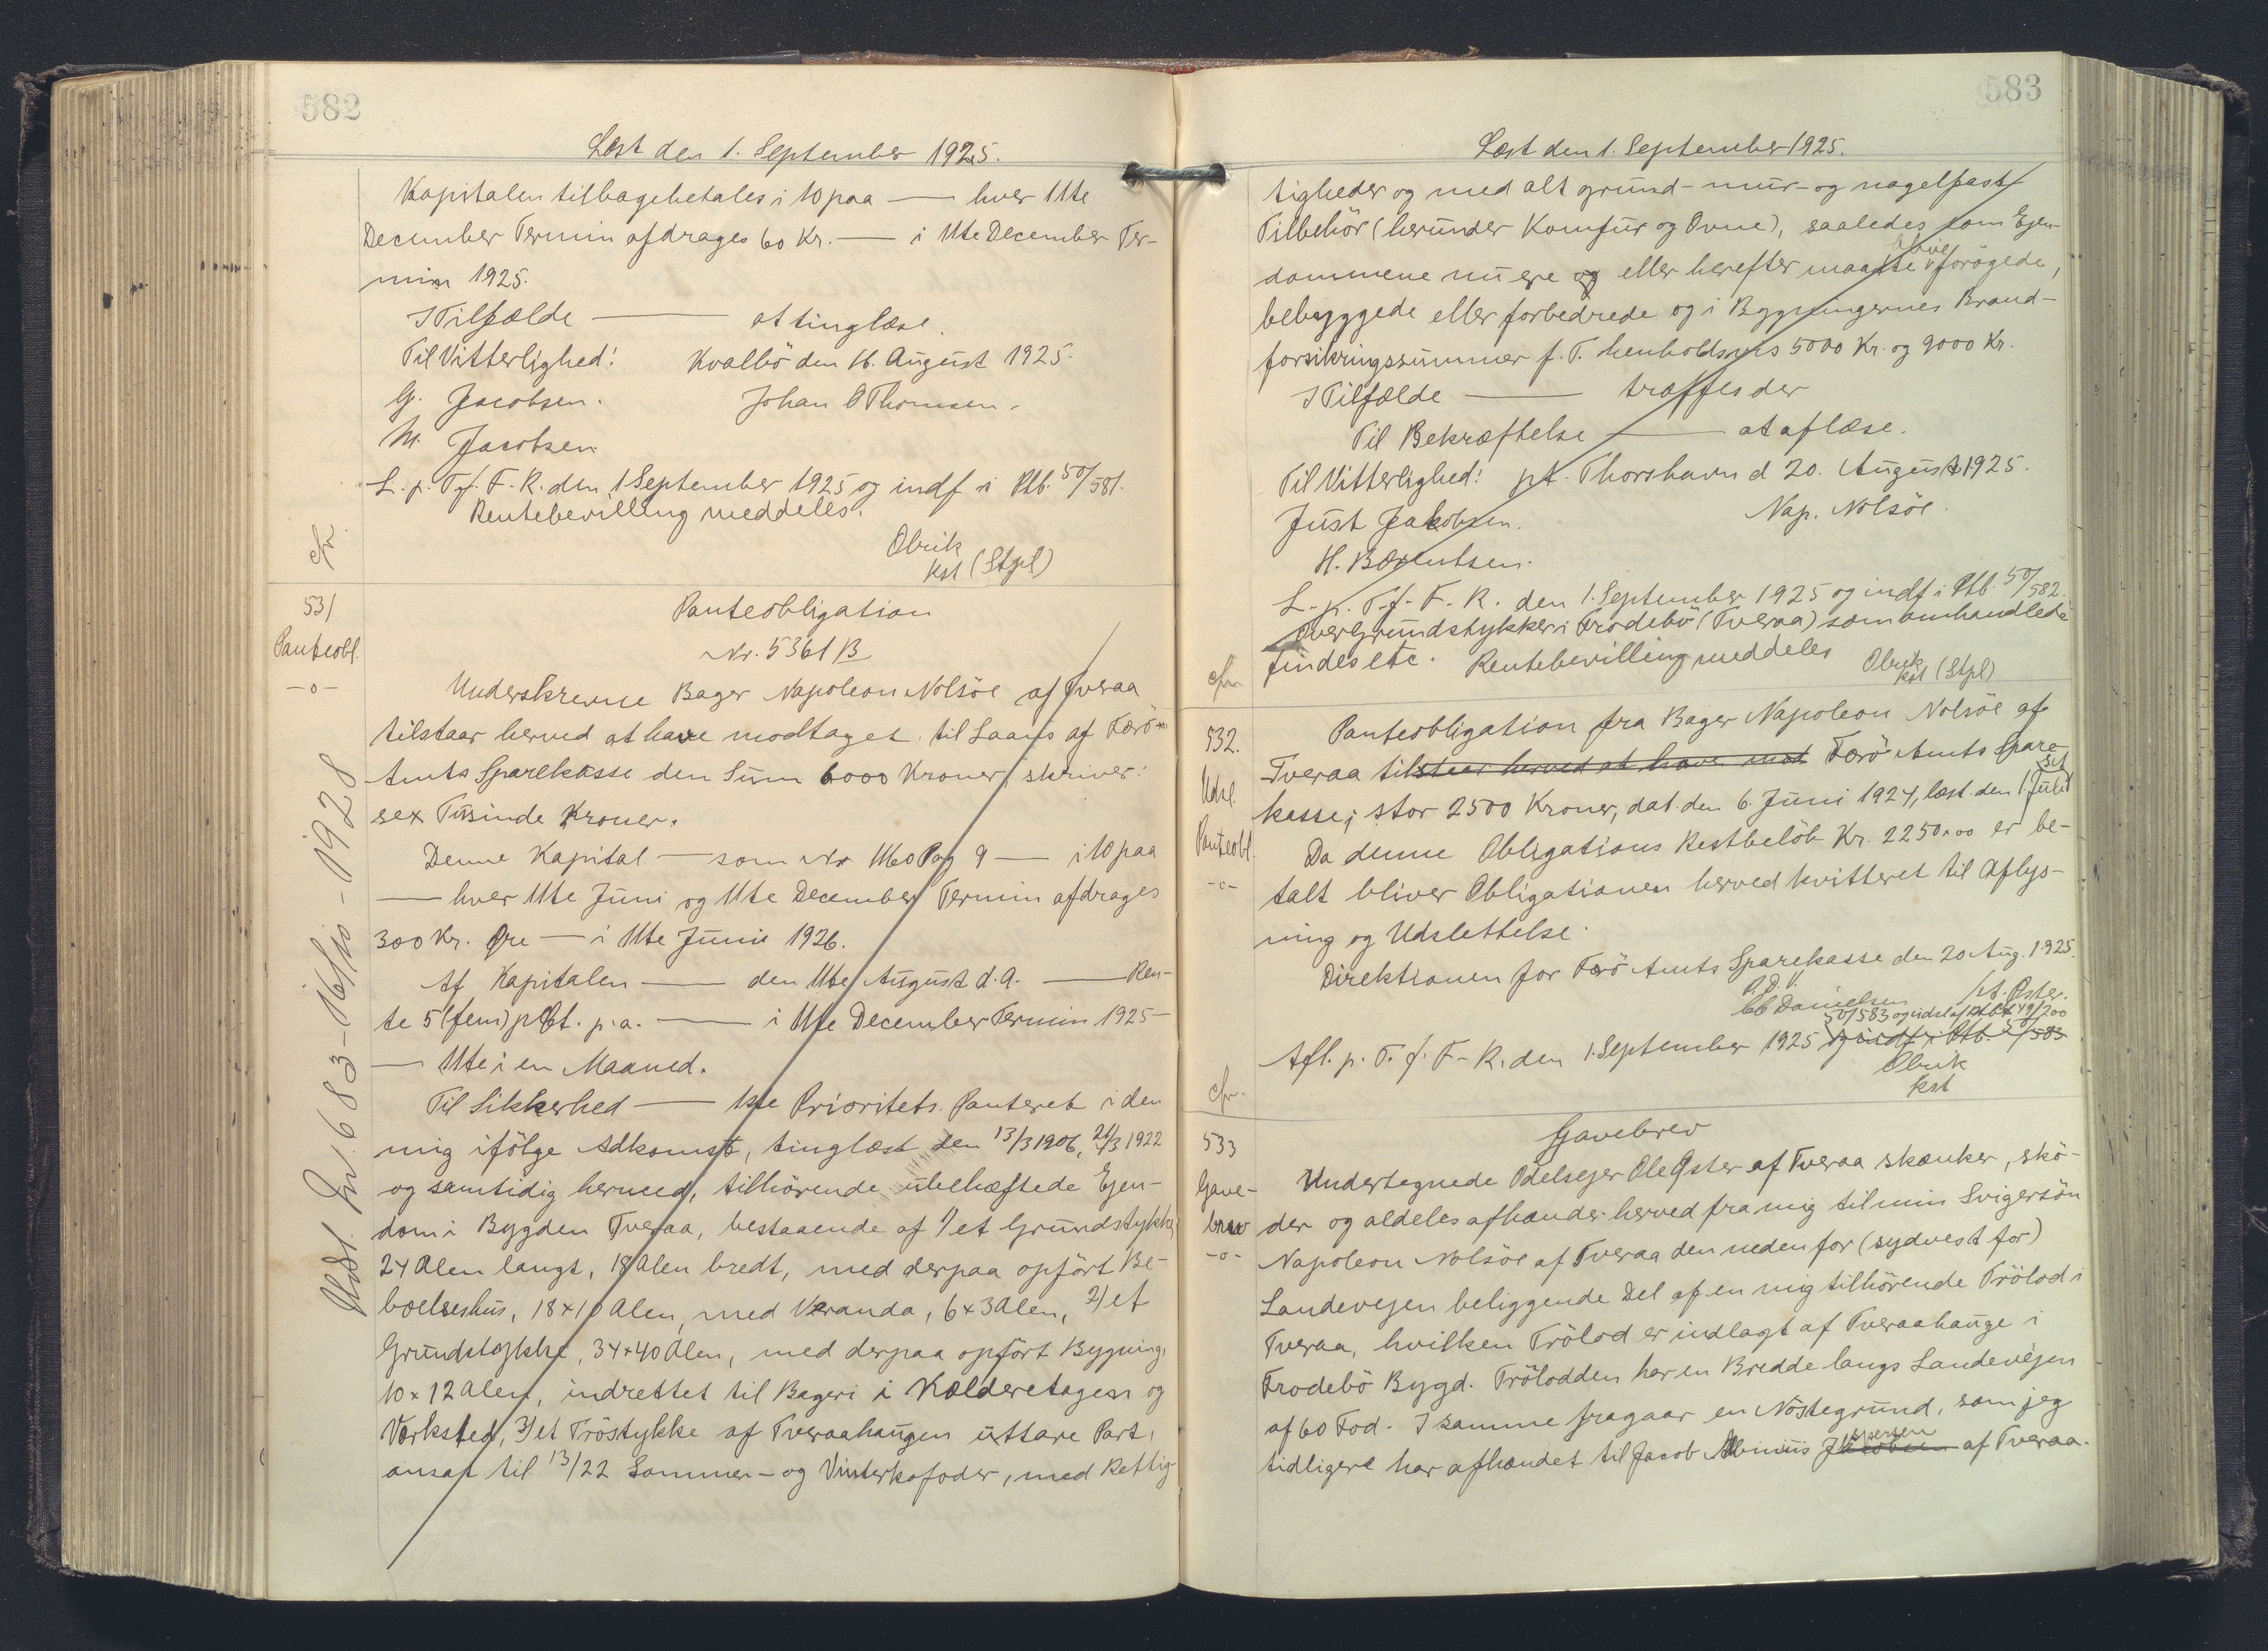 582
Læst den 1. September 1925.
Kapitalen tilbagebetales i 10 paa — hver 11te
December Termin afdrages 60 Kr. — i 11te December Ter-
min 1925.
I Tilfælde — at tinglæse.
Til Vitterlighed! Kvalbö den 16. August 1925.
G. Jacobsen. Johan O Thomsen.
M. Jacobsen
L. p. T. f. F. R. den 1 September 1925 og indf i Ptb. 50/581.
Rentebevilling meddeles.
Obrik
kst (Stpl)
cfr.
531
Panteobl.
-o-
Udsl. Dnr. 683-16/10-1928
Panteobligation
Nr. 5361 B
Underskrevne Bager Napoleon Nolsöe af Tveraa
tilstaar herved at have modtaget til Laans af Færö
Amts Sparekasse den Sum 6000 Kroner, skriver:
sex Tusinde Kroner.
Denne Kapital — som Nr 1160 Pag 9 — i 10 paa
— hver 11te Juni og 11te December Termin afdrages
300 Kr. Øre — i 11te Juni 1926.
Af Kapitalen — den 11te August d.A. — Ren-
te 5 (fem) pCt. p.a. — i 11te December Termin 1925 —
— 11te i en Maaned.
Til Sikkerhed — 1ste Prioritets Panteret i den
mig ifölge Adkomst, tinglæst den 13/3 1906, 21/3 1922
og samtidig hermed, tilhörende ubehæftede Ejen-
dom i Bygden Tveraa, bestaaende af 1) et Grundstykke,
24 Alen langt, 18 Alen bredt, med derpaa opfört Be-
boelseshus, 18 x 10 Alen, med Veranda, 6 x 3 Alen, 2) et
Grundstykke, 34 x 40 Alen, med derpaa opfört Bygning,
10 x 12 Alen, indrettet til Bageri i Kælderetagen og
Værksted, 3) et Tröstykke af Tveraahaugen uttare Part,
ansat til 13/22 Sommer- og Vinterkofoder, med Rettig-
583
Læst den 1. September 1925.
tigheder og med alt grund- mur- og nagelfast
Tilbehör (herunder Komfur og Ovne), saaledes som Ejen-
dommene nu ere og eller herefter maatte blive forögede,
bebyggede eller forbedrede og i Bygningernes Brand-
forsikringssummer f. T. henholdsvis 5000 Kr. og 9000 Kr.
I Tilfælde — træffes der
Til Bekræftelse — at aflæse.
Til Vitterlighed! pt. Thorshavn d 20. August 1925.
Just Jakobsen. Nap. Nolsöe.
H. Bærentsen.
L. p. T. f. F. R. den 1. September 1925 og indf i Ptb. 50/582.
Over Grundstykker i Frodebö (Tveraa) som omhandlede
findes etc. Rentebevilling meddeles
Obrik
kst (Stpl)
cfr.
532.
Udsl.
Panteobl.
-o-
Panteobligation fra Bager Napoleon Nolsöe af
Tveraa tilstaar herved at have mod Færö Amts Spare-
kasse, stor 2500 Kroner, dat. den 6. Juni 1924, læst den 1 Juli
Da denne Obligations Restbelöb Kr. 2250,00 er be-
talt bliver Obligationen herved kvitteret til Aflys-
ning og Udslettelse.
Direktionen for Færö Amts Sparekasse den 20 Aug. 1925.
P.D.V.
CC Danielsen
50/583 og udsl af Ptb 49/200
Afl. p. T. f. F. R. den 1. September 1925 og indf i Ptb. 50/583
Obrik
kst
cfr.
533
Gave-
brev
-o-
Gavebrev
Undertegnede Odelsejer Ole Øster af Tveraa skænker, skö-
der og aldeles afhænder herved fra mig til min Svigersön
Napoleon Nolsöe af Tveraa den neden for (sydvest for)
Landevejen beliggende Del af en mig tilhörende Trölod i
Tveraa, hvilken Trölod er indlagt af Tveraahauge i
Frodebö Bygd. Trölodden har en Bredde langs Landevejen
af 60 Fod. I samme fragaar en Nöstegrund, som jeg
tidligere har afhændet til Jacob Albinus Jespersen af Tveraa.